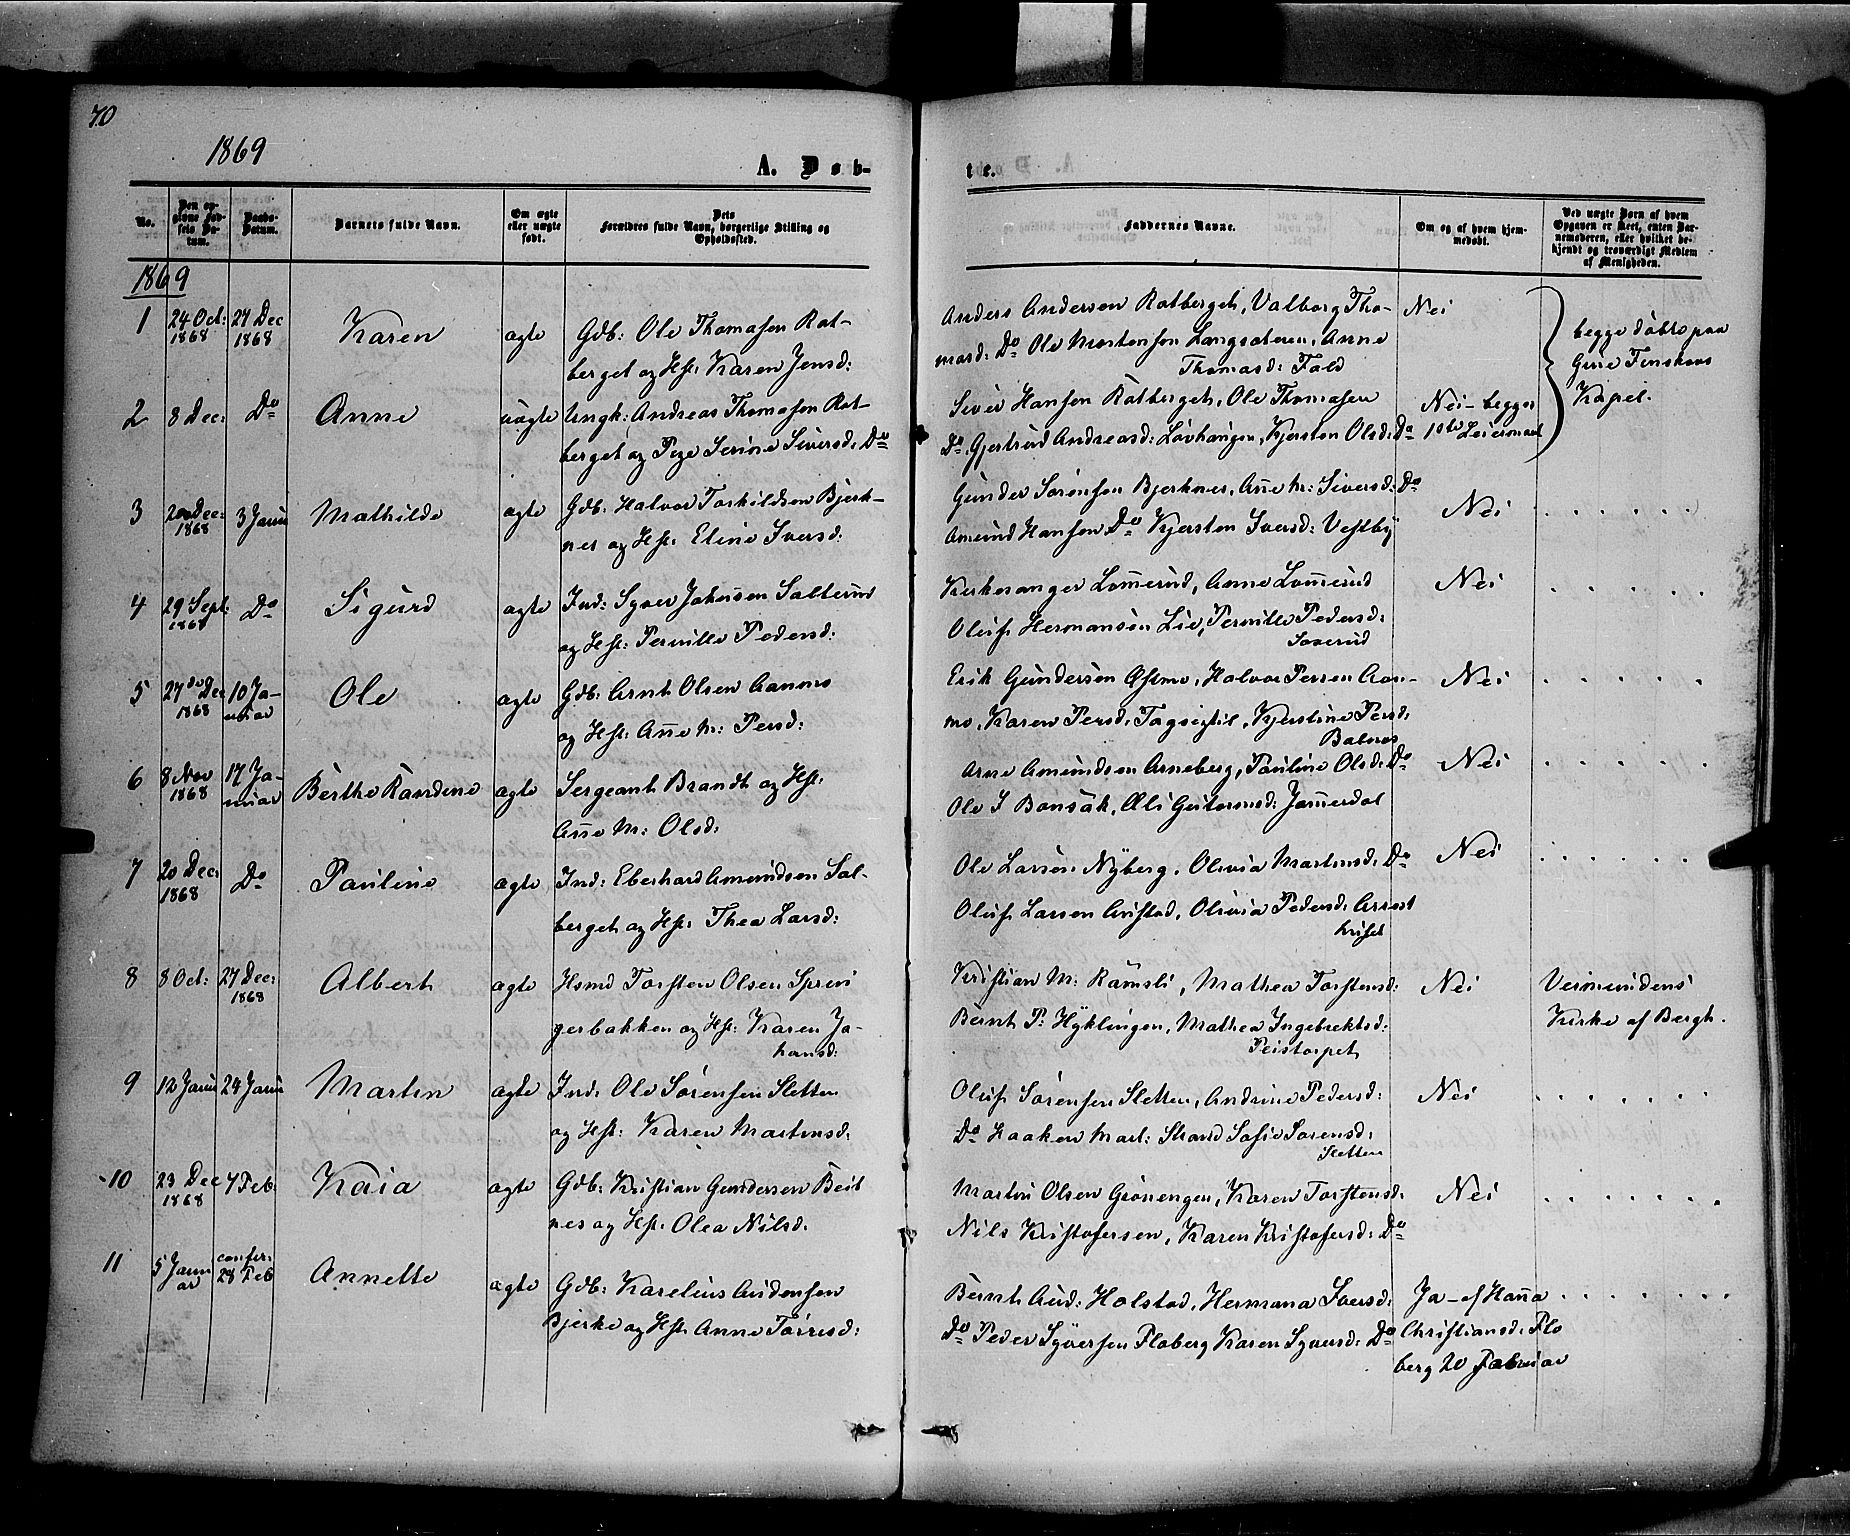 70
1869
A. Døb-
te.
No.
Den op-
givne Fød-
sels Da-
tum.
Daabs-
Datum.
Barnets fulde Navn.
Om ægte
eller uægte
født.
Dets
Forældres fulde Navn, borgerlige Stilling og
Opholdssted.
Faddernes Navne.
Om og af hvem hjem-
medøbt.
Ved uægte Børn af hvem
Opgaven er skeet, enten Bar-
nemoderen, eller hvilket be-
kjendt og troværdigt Medlem
af Menigheden.
1869
1 24 Oct: 1868 27 Dec 1868 Karen ægte Gdb: Ole Thomasen Rot-
berget og Hst: Karen Jensd:
Anders Andersen Rotberget, Valborg Tho-
masd: Do Ole Mortensen Langsæteren, Anne
Thomasd: Fald
Nei
begge døbte paa
Grue Finskovs
Kapel.
2 8 Dec: Do Anne uægte Ungk: Andreas Thomasen Rot-
berget og Pige Serine Siversd: Do
Siver Hansen Rotberget, Ole Thomasen
Do, Gjertrud Andreasd: Løvhaugen, Kjersten Olsd: Do
Nei - begges
1ste Leiermaal
3 20 Dec: 1868 3 Janu Mathilde ægte Gdb: Halvor Torkildsen Bjerk-
nes og Hst: Eline Iversd:
Gunder Sørensen Bjerknes, Anne M: Siversd: Do
Amund Hansen Do Kjersten Iversd: Vestby
Nei
4 29 Sept: 1868 Do Sigurd ægte Ind: Syver Johnsen Salterud
og Hst: Pernille Pedersd:
Kirkesanger Lomerud, Anne Lomerud
Oluf Hermansen Lie, Pernille Pedersd:
Nei
5 27de Dec 1868 10 Ja-
nuar Ole ægte Gdb: Arnt Olsen Aamo
og Hst: Anne M: Persd:
Erik Gundersen Østmo, Halvor Persen Aa-
mo, Karen Persd: Tagsigtil, Kjerstine Persd:
Balnes
Nei
6 8 Nov 1868 17 Ja-
nuar Berthe Randine ægte Sergeant Brandt og Hst:
Anne M: Olsd:
Arne Amundsen Arneberg, Pauline Olsd: Do
Ole S Bonsak, Eli Guttormsd: Jammerdal
Nei
7 20 Dec: 1868 Do Pauline ægte Ind: Eberhard Amundsen Sol-
berget og Hst: Thea Larsd:
Ole Larsen Nyberg, Olivia Martinsd: Do
Oluf Larsen Aristad, Olivia Pedersd: Arrest
huset
Nei
8 8 Oct: 27 Dec: 1868 Albert ægte Hsmd Torsten Olsen Sprin
gerbakken og Hst: Karen Jo-
hansd:
Kristian M: Ramsli, Mathea Torstensd:
Bernt P: Hyklingen, Mathea Ingebrektsd:
Peistorpet
Nei
Vermundens
Kirke af Bergh.
9 12 Janu 24 Janu Martin ægte Ind: Ole Sørensen Sletten
og Hst: Karen Martinsd:
Oluf Sørensen Sletten, Andrine Pedersd:
Do Haaken Mart: Strand Sofie Sørensd:
Sletten
Nei
10 23 Dec 1868 7 Feb: Kaia ægte Gdb: Kristian Gundersen Beit
nes og Hst: Olea Nilsd:
Martin Olsen Grønengen, Karen Torstensd:
Nils Kristofersen, Karen Kristofersd: Do
Nei
11 5 Janu
ar confir: 28 Feb Annette ægte Gdb: Karelius Audensen
Bjerke og Hst: Anne Torresd:
Bernt Aud: Holstad, Hermana Iversd:
Do Peder Syversen Floberg Karen Syversd: Do
Ja - af Hanna
Christiansd: Flo
berg 20 Februar